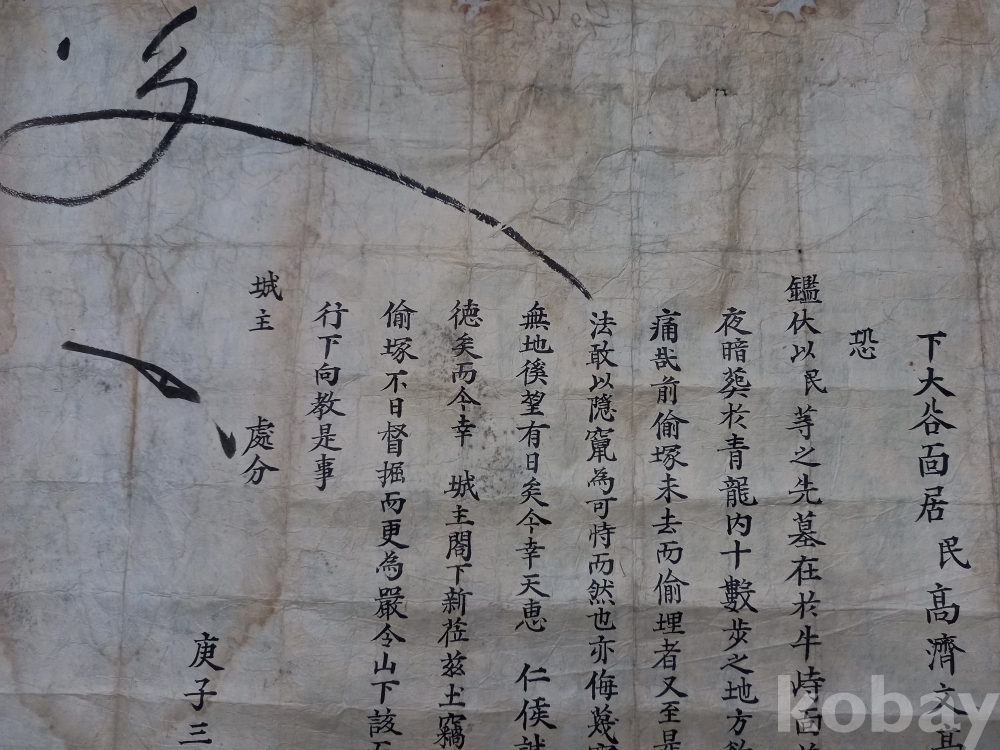 下大谷面居 民 高濟文
恐
鑑伏以民等之先墓在於牛峙面
夜暗葬於青龍內十數步之地方
痛哉前偷塚未去而偷埋者又至是
法敢以隱竄為可恃而然也亦侮蔑
無地後望有日矣今幸天惠 仁侯
德矣而今幸 城主閤下新莅玆土竊
偷塚不日督掘而更為嚴令山下該
行下向敎是事
城主 處分
庚子三
kobay